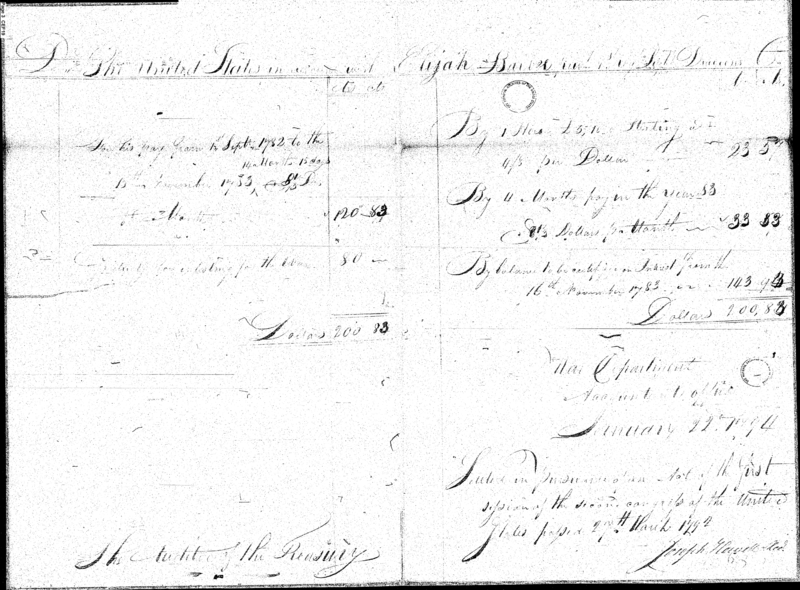 Dr The United States in with Elijah Baker Cr
For his pay from Sept 1782 to the
14 Months 15 days
15th November 1783, @ 8⅓ D.
Month 120 83
for enlisting for the War 80 —
Dollars 200 83
By 1 Sterling at
4/6 per Dollar 23 5
By 4 Months pay in the year 83
@ 8⅓ Dollars per Month 33 33
By balance to be certified on Interest from the
16th November 1783 143 9
Dollars 200,83
War Department
Accountants office
January 22d 1794
Settled in pursuance of an Act of the first
session of the second congress of the United
States passed 27th March 1792
Joseph Howell
The Auditor of the Treasury